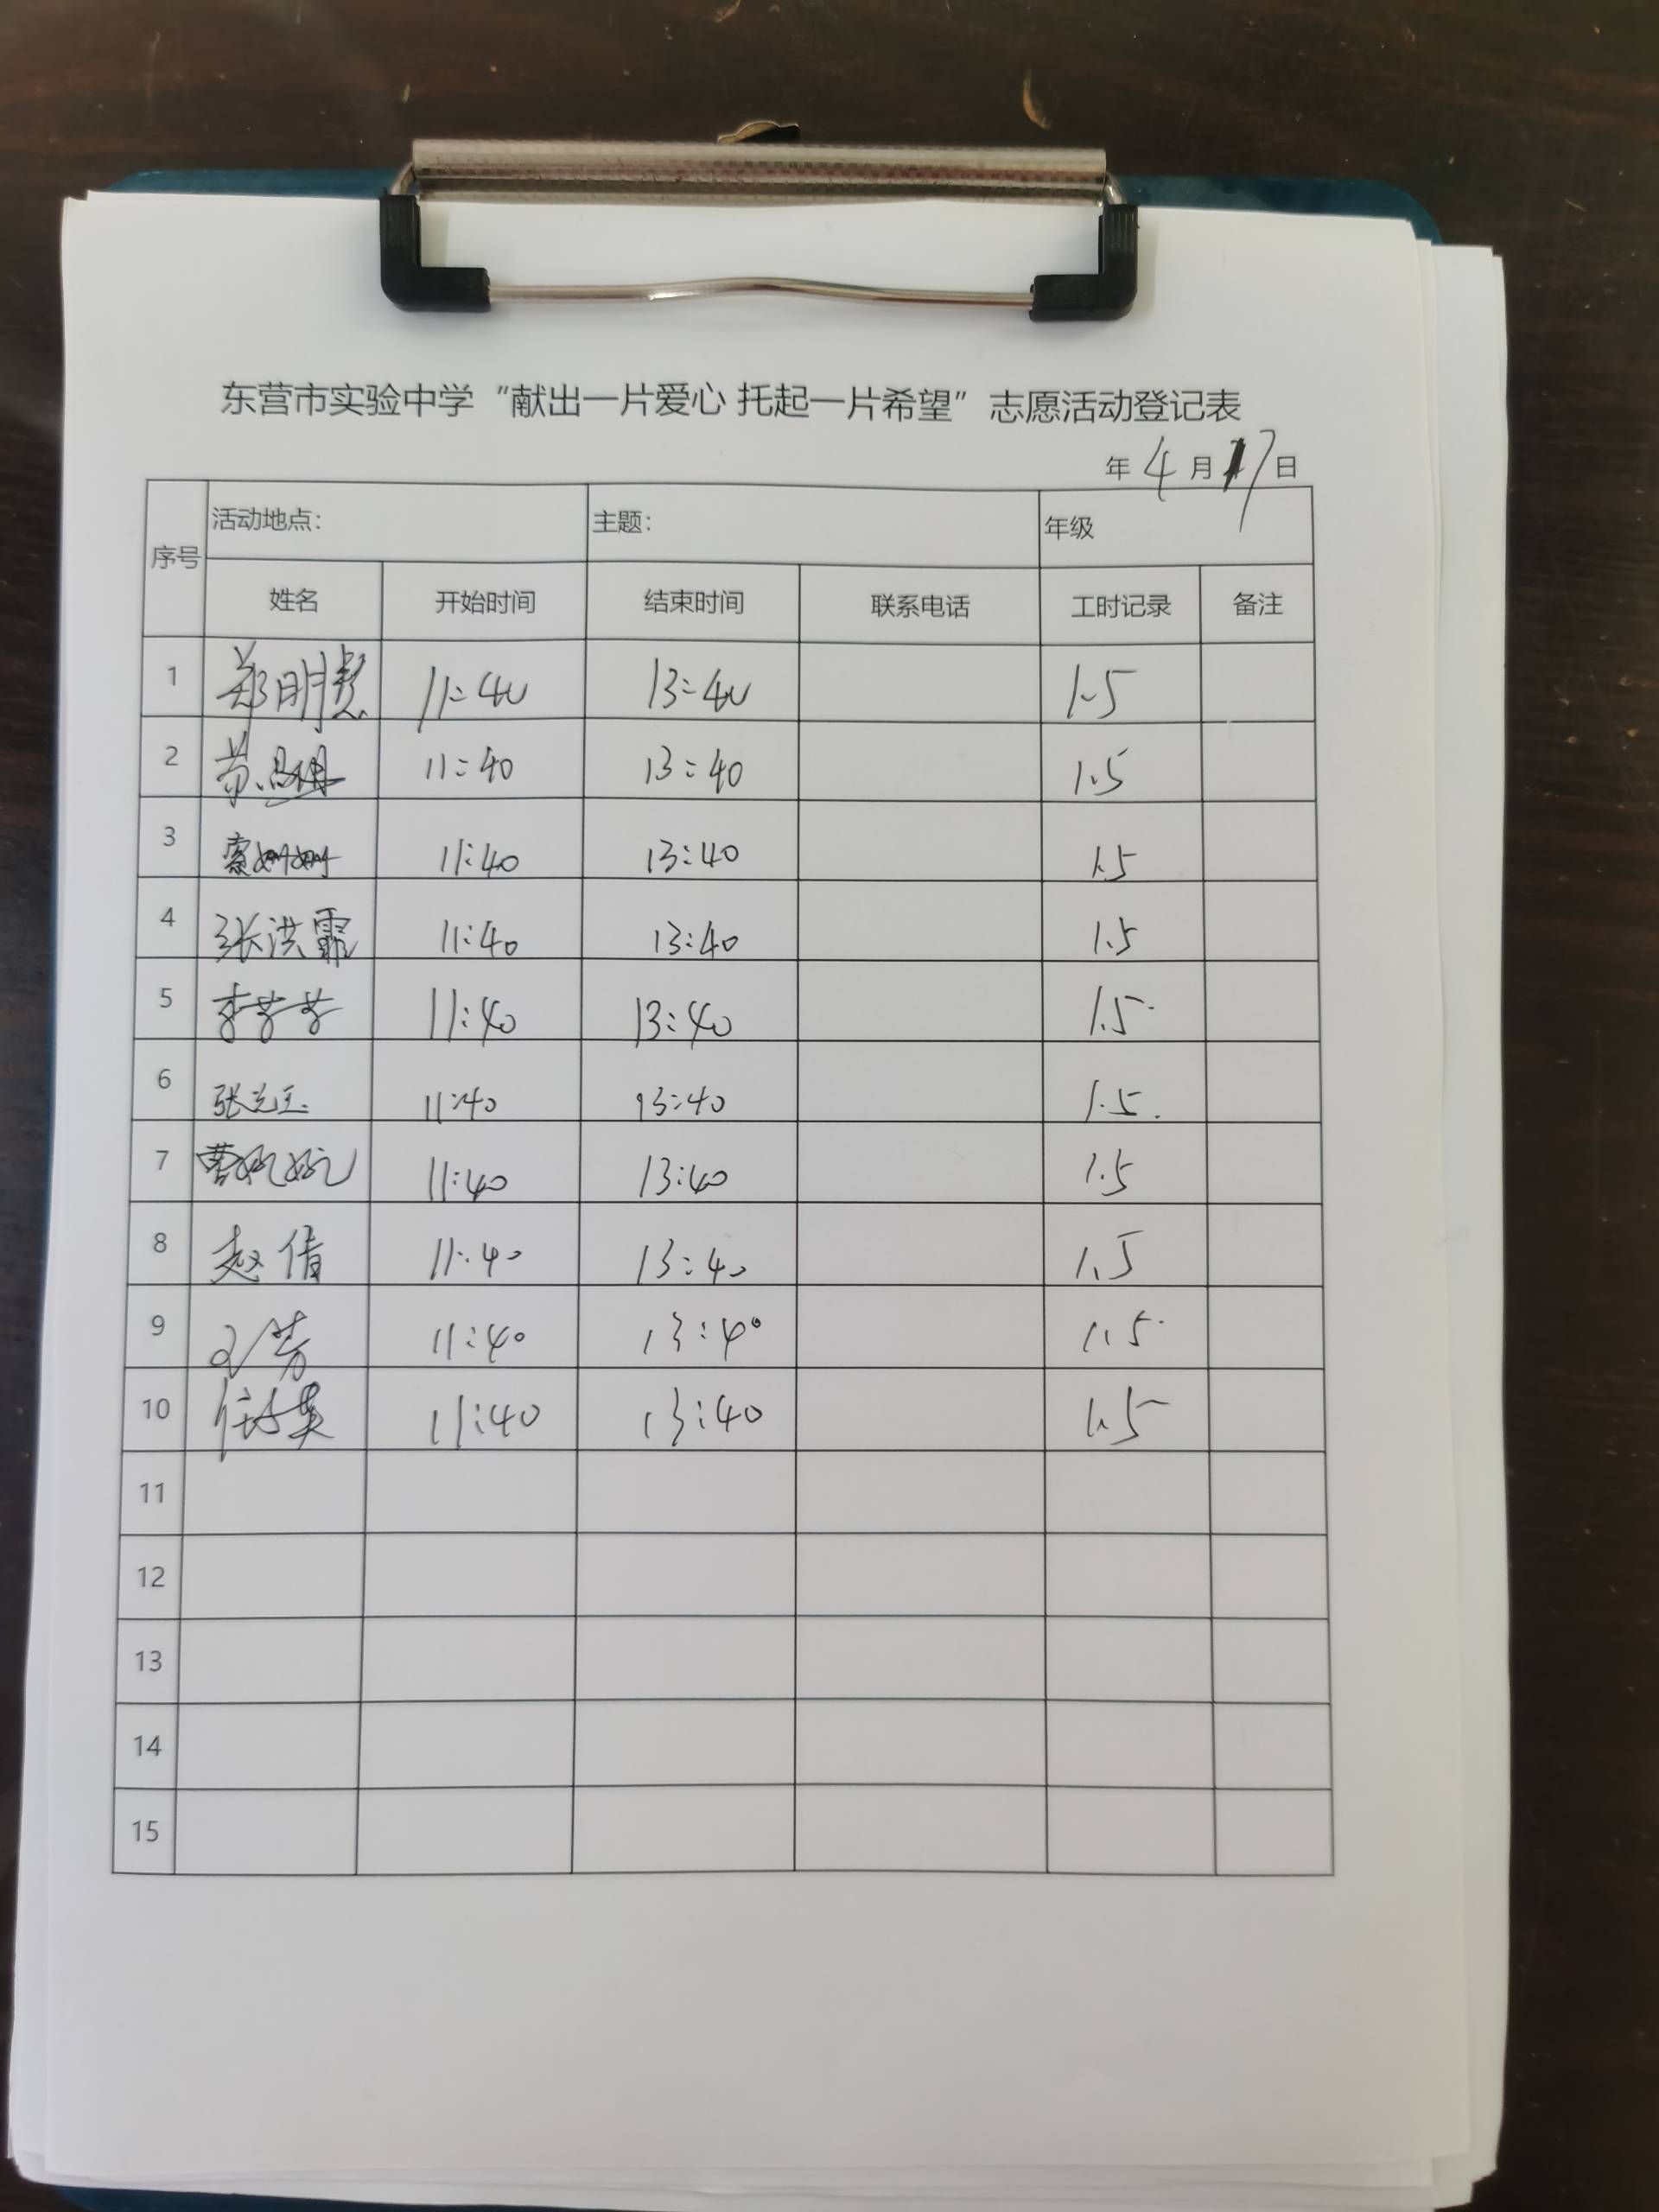 东营市实验中学“献出一片爱心 托起一片希望”志愿活动登记表
年 4 月 17 日
序号 活动地点： 主题： 年级
姓名 开始时间 结束时间 联系电话 工时记录 备注
1 郑明慧 11:40 13:40 1.5
2 11:40 13:40 1.5
3 索姗姗 11:40 13:40 1.5
4 张洪霏 11:40 13:40 1.5
5 李芳芳 11:40 13:40 1.5
6 11:40 13:40 1.5
7 11:40 13:40 1.5
8 赵倩 11:40 13:40 1.5
9 王芳 11:40 13:40 1.5
10 11:40 13:40 1.5
11
12
13
14
15